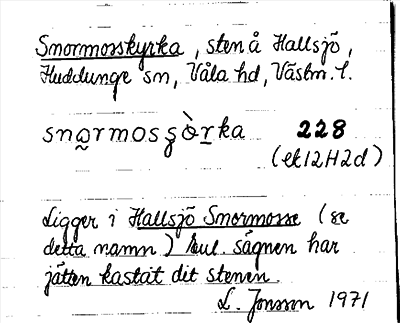 Snormosskyrka, sten å Hallsjö,
Huddunge sn, Våla hd, Västm. l.
snormosʂòrka 228
(ek 12H2d)
Ligger i Hallsjö Snormosse (se
detta namn) Enl. sägnen har
jätten kastat dit stenen.
L. Jonsson 1971